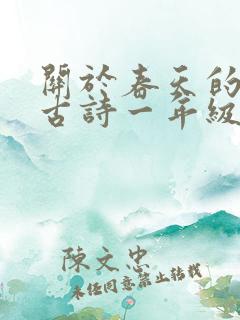 關於春天的
古詩一年級
陳文忠
未經同意禁止轉載